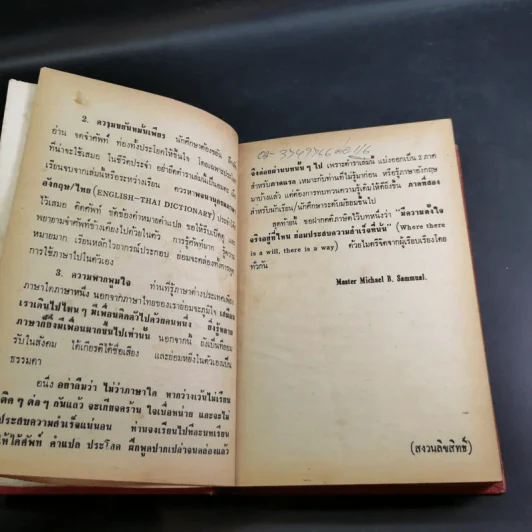 2. ความขยันหมั่นเพียร นักศึกษาต้องขยัน
อ่าน จดจำศัพท์ ท่องทั้งประโยคให้ขึ้นใจ
ที่น่าจะใช้เสมอ ในชีวิตประจำ
เรียนจบจากเล่มแล้ว
อังกฤษ/ไทย (ENGLISH-THAI DICTIONARY)
ไว้เสมอ ติดศัพท์ ขัดข้องคำหมายคำแปล ขอให้รีบเปิด
พยายามจำศัพท์ข้างเคียงไปด้วย
หมายมาก เรียนหลักไวยากรณ์ประกอบ
การใช้ภาษาไปในตัวเอง
3. ความภาคภูมิใจ ท่านที่รู้ภาษาต่างประเทศ
ภาษาใดภาษาหนึ่ง นอกจากภาษาไทยของเราย่อมจะภูมิใจ
เราเดินไปไหน ๆ มีเพื่อนติดตัวไปด้วยคนหนึ่ง
ภาษาก็ยิ่งมีเพื่อนมากขึ้นไปเท่านั้น นอกจากนี้
รับในสังคม ได้เกียรติได้ชื่อเสียง และย่อมหยิ่งในตัวเองเป็น
ธรรมดา
อนึ่ง อย่าลืมว่า ไม่ว่าภาษาใด หากว่างเว้นไม่เรียน
ติด ๆ ต่อ ๆ กันแล้ว จะเกียจคร้าน ใจเบื่อหน่าย และจะไม่
ประสบความสำเร็จแน่นอน ท่านจงเรียนไปทีละบทเรียน
ให้ได้ศัพท์ คำแปล ประโยค ฝึกพูดปากเปล่าจนคล่องแล้ว
จึงค่อยผ่านบทนั้น ๆ ไป เพราะตำราเล่มนี้ แบ่งออกเป็น 2 ภาค
สำหรับภาคแรก เหมาะกับท่านที่ไม่รู้มาก่อน หรือรู้ภาษาอังกฤษ
มาบ้างแล้ว แต่ต้องการทบทวนความรู้เดิมให้ดียิ่งขึ้น ภาคที่สอง
สำหรับนักเรียน/นักศึกษาระดับมัธยมขึ้นไป
สุดท้ายนี้ ขอฝากคติภาษิตไว้บทหนึ่งว่า "มีความตั้งใจ
จริงอยู่ที่ไหน ย่อมประสบความสำเร็จที่นั้น" (Where there
is a will, there is a way) ด้วยไมตรีจิตจากผู้เรียบเรียงโดย
ทั่วกัน
Master Michael B. Sammual.
(สงวนลิขสิทธิ์)